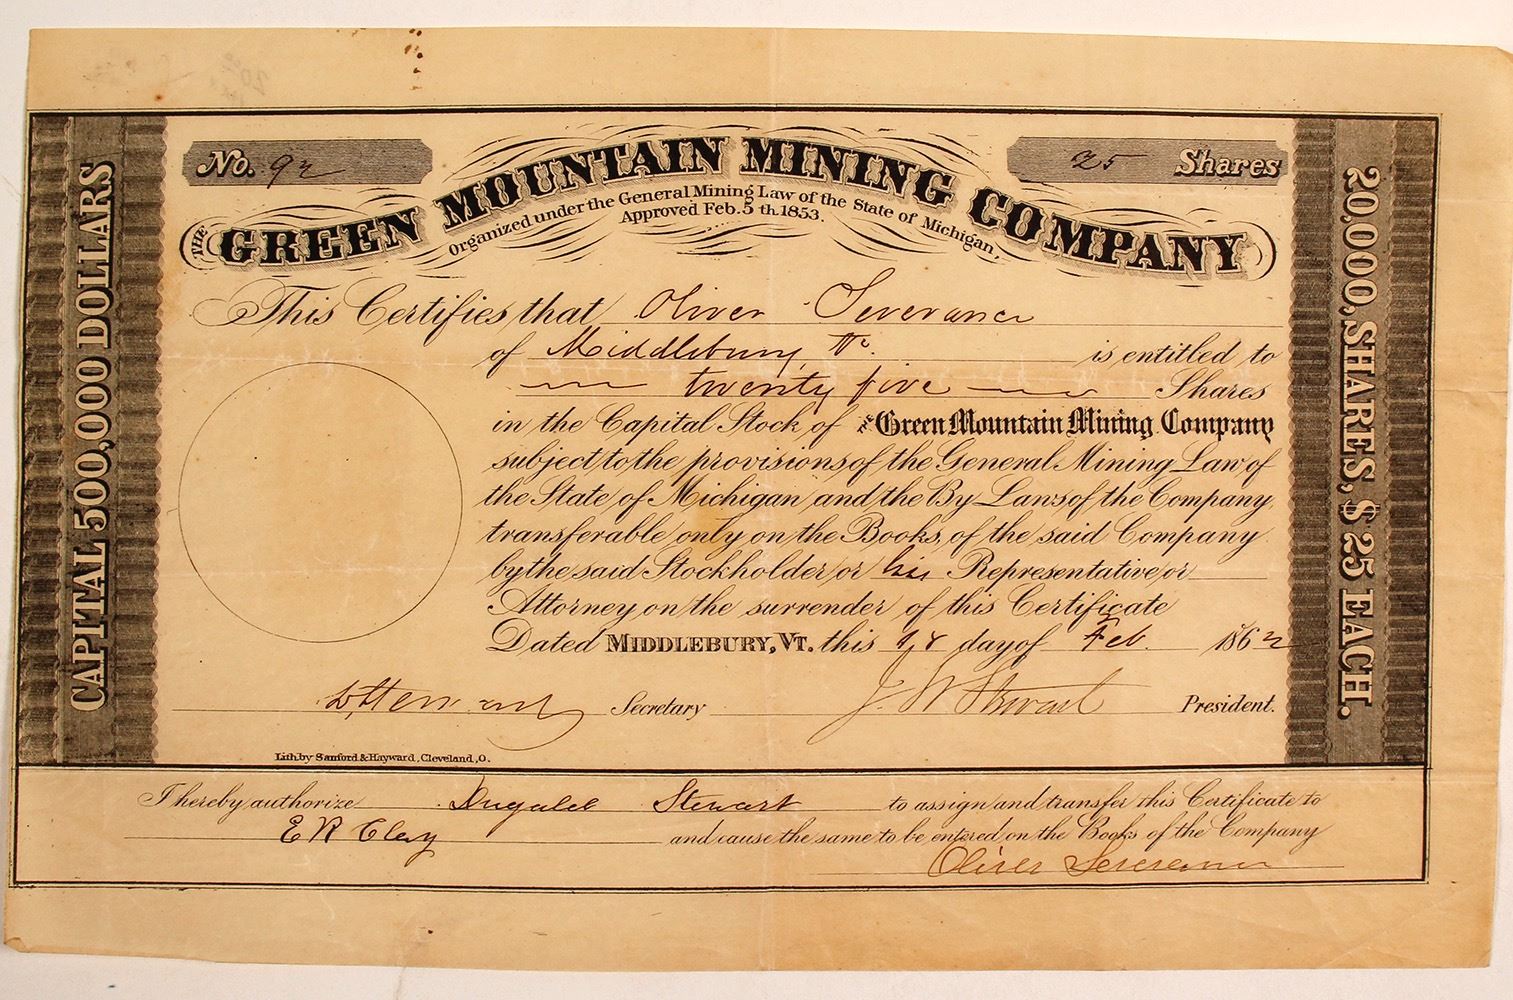 No. 92
25 Shares
THE GREEN MOUNTAIN MINING COMPANY
Organized under the General Mining Law of the State of Michigan,
Approved Feb. 5 th. 1853.
CAPITAL 500,000 DOLLARS
20,000, SHARES, $25 EACH.
This Certifies that Oliver Severance
of Middlebury Vt. is entitled to
twenty five Shares
in the Capital Stock of the Green Mountain Mining Company
subject to the provisions of the General Mining Law of
the State of Michigan and the By Laws of the Company,
transferable only on the Books, of the said Company
by the said Stockholder or his Representative or
Attorney on the surrender of this Certificate
Dated MIDDLEBURY, VT. this 18 day of Feb. 1862
Secretary J. W. Stewart President.
Lith. by Sanford & Hayward, Cleveland, O.
I hereby authorize Dugald Stewart to assign and transfer this Certificate to
E R Clay and cause the same to be entered on the Books of the Company
Oliver Severance